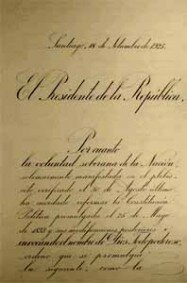 Santiago, 18 de Setiembre de 1925.
El Presidente de la República,
Por cuanto
la voluntad soberana de la Nación
solemnemente manifestada en el plebis-
cito verificado el 30 de Agosto último
ha acordado reformar la Constitución
Política promulgada el 25 de Mayo
de 1833 y sus modificaciones posteriores e
invocando el nombre de Dios Todopoderoso,
ordeno que se promulgue
la siguiente, como la